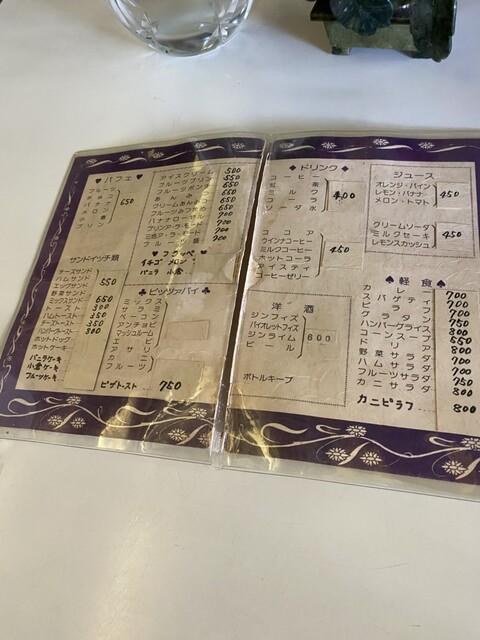 ♥ パフェ ♥
フルーツ
チョコ
バナナ
メロン
プリン
650
アイスクリーム 500
フルーツプリン 550
フルーツポンチ 650
あんみつ 650
クリームあんみつ 650
フルーツみつ豆 650
バナナローヤル 700
プリンアラモード 700
700
フルーツ 700
イチゴ メロン
バニラ 小倉
サンドイッチ類
チーズサンド
ハムサンド
エッグサンド
野菜サンド
550
ミックスサンド 650
トースト 300
ハムトースト 350
チーズトースト 350
バンバートースト 300
ホットドッグ
ホットケーキ
バニラケーキ
小倉ケーキ
フルーツケーキ
♣ ピッツァパイ ♣
ミックス
サラミ
ベーコン
アンチョビ
マッシュルーム
エビ
アサリ
カニ
フルーツ
ピザトースト 750
♦ ドリンク ♦
コーヒー
紅茶
ミルク
コーラ
ソーダ水
400
ココア
ウインナコーヒー
ミルクコーヒー
ホットコーラ
アイスティ
コーヒーゼリー
450
洋酒
ジンフィズ
バイオレットフィズ
ジンライム
ビール
600
ボトルキープ
ジュース
オレンジ・パイン
レモン・バナナ
メロン・トマト
450
クリームソーダ
ミルクセーキ
レモンスカッシュ
450
♠ 軽食 ♠
カレー 700
スパゲティ 700
ピラフ 700
グラタン 700
ハンバーグライス 750
コーンスープ 800
ドリア 550
野菜サラダ 800
ハムサラダ 700
フルーツサラダ 700
カニサラダ 750
800
カニピラフ 800